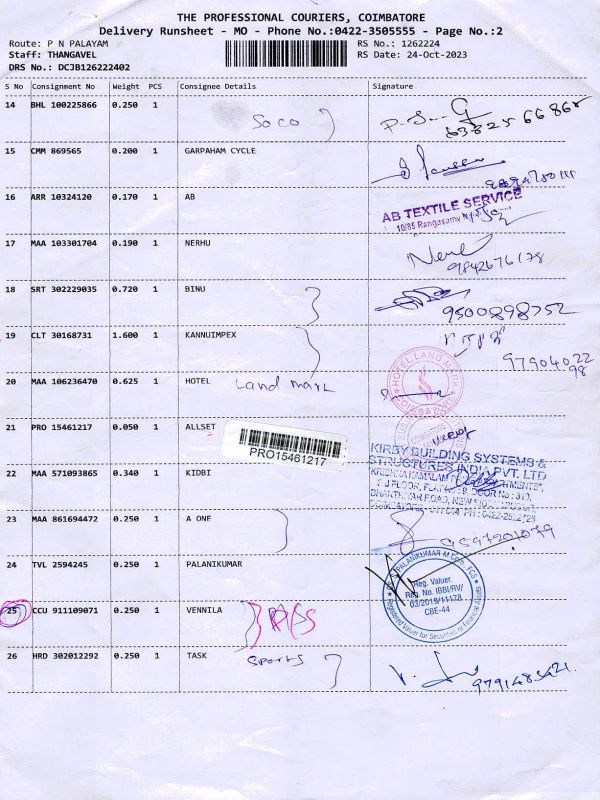 THE PROFESSIONAL COURIERS, COIMBATORE
Delivery Runsheet - MO - Phone No.:0422-3505555 - Page No.:2
Route: P N PALAYAM RS No.: 1262224
Staff: THANGAVEL RS Date: 24-Oct-2023
DRS No.: DCJB126222402
S No Consignment No Weight PCS Consignee Details Signature
14 BHL 100225866 0.250 1 Soco
15 CMM 869565 0.200 1 GARPAHAM CYCLE
16 ARR 10324120 0.170 1 AB
AB TEXTILE SERVICE
10/85 Rangasamy
17 MAA 103301704 0.190 1 NERHU
9842676178
18 SRT 302229035 0.720 1 BINU
9500898752
19 CLT 30168731 1.600 1 KANNUIMPEX
97904022
98
20 MAA 106236470 0.625 1 HOTEL Land mark
HOTEL LAND MARK
21 PRO 15461217 0.050 1 ALLSET
PRO15461217
KIRBY BUILDING SYSTEMS &
STRUCTURES INDIA PVT. LTD
22 MAA 571093865 0.340 1 KIDBI
23 MAA 861694472 0.250 1 A ONE
24 TVL 2594245 0.250 1 PALANIKUMAR
PALANIKUMAR M.Com, FCS
Reg. Valuer.
Reg. No. IBBI/RV/
03/2019/11178
CBE-44
Registered Valuer for Securities or Financial Assets
25 CCU 911109071 0.250 1 VENNILA
26 HRD 302012292 0.250 1 TASK Sports